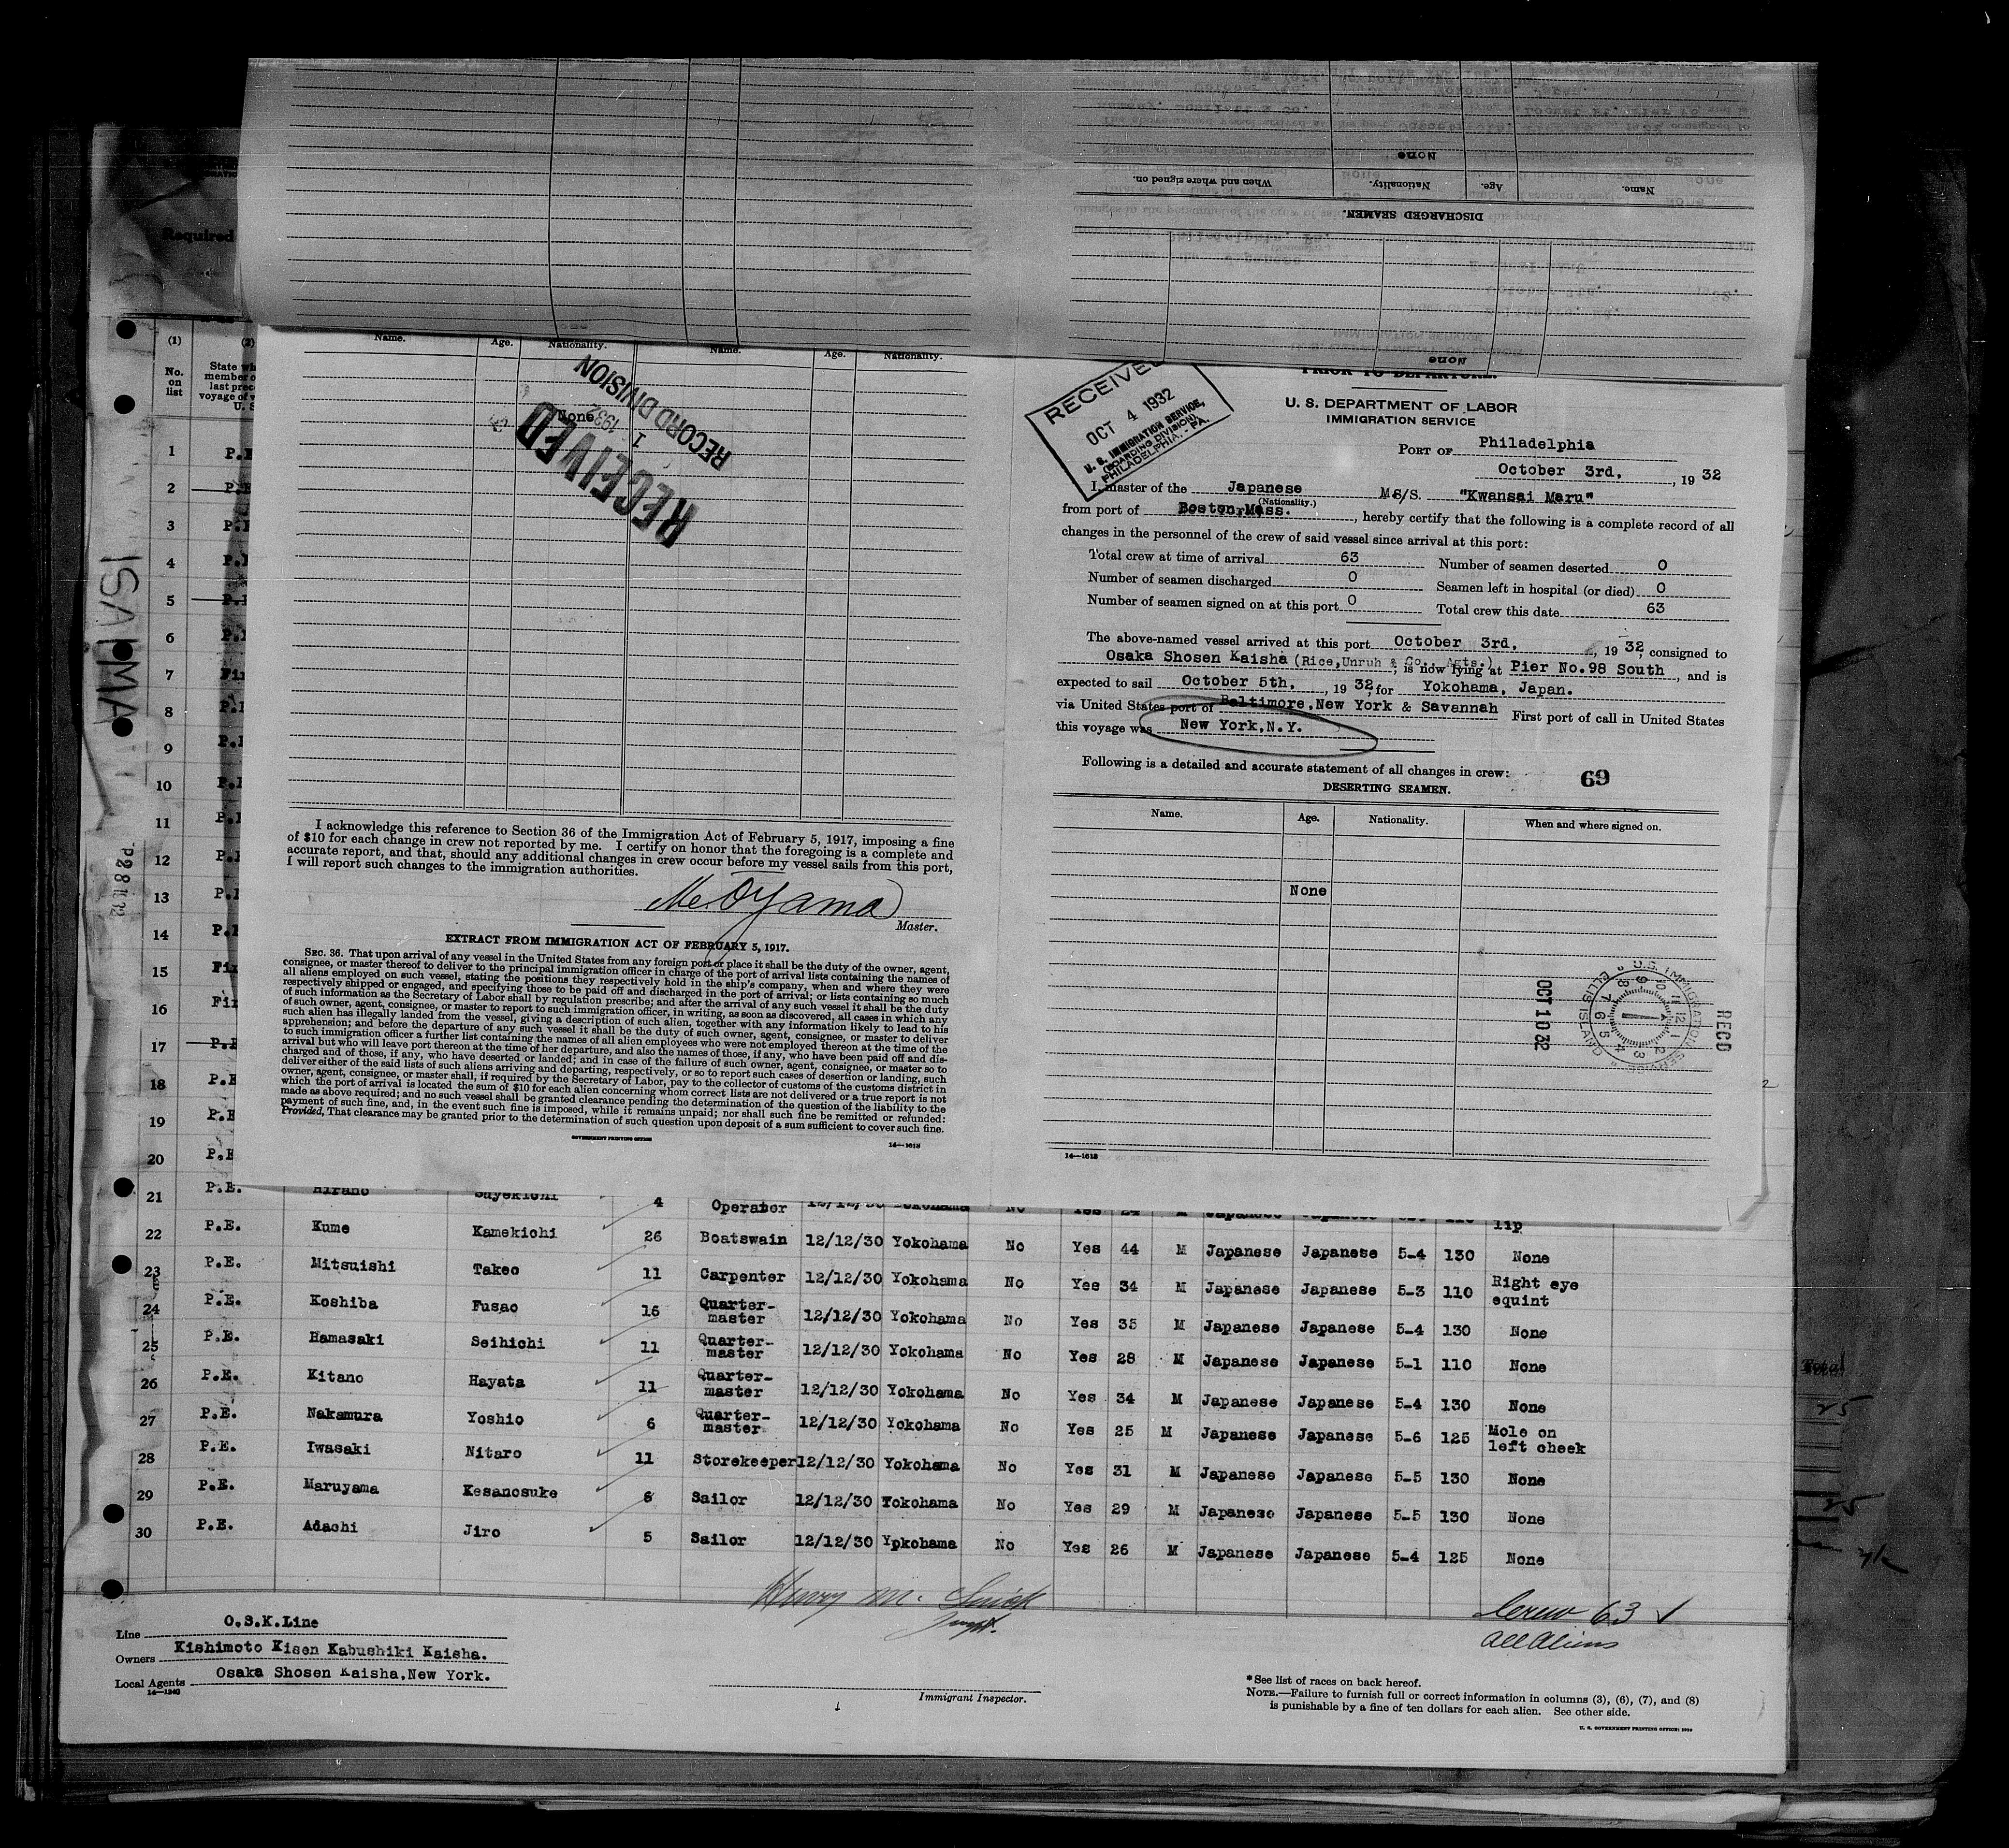 DISCHARGED SEAMEN.
Name. Age. Nationality. When and where signed on.
None
None
Name. Age. Nationality. Name. Age. Nationality.
None
RECEIVED
1932
RECORD DIVISION
I acknowledge this reference to Section 36 of the Immigration Act of February 5, 1917, imposing a fine
of $10 for each change in crew not reported by me. I certify on honor that the foregoing is a complete and
accurate report, and that, should any additional changes in crew occur before my vessel sails from this port,
I will report such changes to the immigration authorities.
Oyama
Master.
EXTRACT FROM IMMIGRATION ACT OF FEBRUARY 5, 1917.
SEC. 36. That upon arrival of any vessel in the United States from any foreign port or place it shall be the duty of the owner, agent,
consignee, or master thereof to deliver to the principal immigration officer in charge of the port of arrival lists containing the names of
all aliens employed on such vessel, stating the positions they respectively hold in the ship's company, when and where they were
respectively shipped or engaged, and specifying those to be paid off and discharged in the port of arrival; or lists containing so much
of such information as the Secretary of Labor shall by regulation prescribe; and after the arrival of any such vessel it shall be the duty
of such owner, agent, consignee, or master to report to such immigration officer, in writing, as soon as discovered, all cases in which any
such alien has illegally landed from the vessel, giving a description of such alien, together with any information likely to lead to his
apprehension; and before the departure of any such vessel it shall be the duty of such owner, agent, consignee, or master to deliver
to such immigration officer a further list containing the names of all alien employees who were not employed thereon at the time of the
arrival but who will leave port thereon at the time of her departure, and also the names of those, if any, who have been paid off and dis-
charged and of those, if any, who have deserted or landed; and in case of the failure of such owner, agent, consignee, or master so to
deliver either of the said lists of such aliens arriving and departing, respectively, or so to report such cases of desertion or landing, such
owner, agent, consignee, or master shall, if required by the Secretary of Labor, pay to the collector of customs of the customs district in
which the port of arrival is located the sum of $10 for each alien concerning whom correct lists are not delivered or a true report is not
made as above required; and no such vessel shall be granted clearance pending the determination of the question of the liability to the
payment of such fine, and, in the event such fine is imposed, while it remains unpaid; nor shall such fine be remitted or refunded:
Provided, That clearance may be granted prior to the determination of such question upon deposit of a sum sufficient to cover such fine.
GOVERNMENT PRINTING OFFICE
14—1613
PRIOR TO DEPARTURE.
RECEIVED
OCT 4 1932
U. S. IMMIGRATION SERVICE,
(BOARDING DIVISION)
PHILADELPHIA, - PA.
U. S. DEPARTMENT OF LABOR
IMMIGRATION SERVICE
PORT OF Philadelphia
October 3rd, , 19 32
I, master of the Japanese M S/S. "Kwansai Maru"
(Nationality.)
from port of Boston, Mass. , hereby certify that the following is a complete record of all
changes in the personnel of the crew of said vessel since arrival at this port:
Total crew at time of arrival 63 Number of seamen deserted 0
Number of seamen discharged 0 Seamen left in hospital (or died) 0
Number of seamen signed on at this port 0 Total crew this date 63
The above-named vessel arrived at this port October 3rd, , 19 32, consigned to
Osaka Shosen Kaisha (Rice, Unruh & Co., Agts.) ; is now lying at Pier No. 98 South , and is
expected to sail October 5th, , 19 32, for Yokohama, Japan.
via United States port of Baltimore, New York & Savannah First port of call in United States
this voyage was New York, N.Y.
Following is a detailed and accurate statement of all changes in crew: 69
DESERTING SEAMEN.
Name. Age. Nationality. When and where signed on.
None
U.S. IMMIGRATION SERVICE ELLIS ISLAND
OCT 10 32
RECD
14—1613
Required
(1)
No. on list
ISAMA
P28 11 32
1 P.E
2 P.E
3 P.E
4 P.E
5 P.E
6 P.E
7 Fir
8 P.E
9 P.E
10 P.E
11 P.E
12 P.E
13 P.E
14 P.E
15 Fir
16 Fir
17 P.E
18 P.E
19 P.E
20 P.E
21 P.E. Hirano Suyekichi 4 Operator 12/12/30 Yokohama No Yes 24 M Japanese Japanese lip
22 P.E. Kume Kamekichi 26 Boatswain 12/12/30 Yokohama No Yes 44 M Japanese Japanese 5-4 130 None
23 P.E. Mitsuishi Takeo 11 Carpenter 12/12/30 Yokohama No Yes 34 M Japanese Japanese 5-3 110 Right eye equint
24 P.E. Koshiba Fusao 16 Quarter-master 12/12/30 Yokohama No Yes 35 M Japanese Japanese 5-4 130 None
25 P.E. Hamasaki Seihichi 11 Quarter-master 12/12/30 Yokohama No Yes 28 M Japanese Japanese 5-1 110 None
26 P.E. Kitano Hayata 11 Quarter-master 12/12/30 Yokohama No Yes 34 M Japanese Japanese 5-4 130 None
27 P.E. Nakamura Yoshio 6 Quarter-master 12/12/30 Yokohama No Yes 25 M Japanese Japanese 5-6 125 Mole on left cheek
28 P.E. Iwasaki Nitaro 11 Storekeeper 12/12/30 Yokohama No Yes 31 M Japanese Japanese 5-5 130 None
29 P.E. Maruyama Kesanosuke 6 Sailor 12/12/30 Yokohama No Yes 29 M Japanese Japanese 5-5 130 None
30 P.E. Adachi Jiro 5 Sailor 12/12/30 Yokohama No Yes 26 M Japanese Japanese 5-4 125 None
Henry M.
Crew 63 ✓
All Aliens
Line O.S.K.Line
Owners Kishimoto Kisen Kabushiki Kaisha.
Local Agents Osaka Shosen Kaisha, New York.
14—1240
Immigrant Inspector.
1
*See list of races on back hereof.
NOTE.—Failure to furnish full or correct information in columns (3), (6), (7), and (8)
is punishable by a fine of ten dollars for each alien. See other side.
U. S. GOVERNMENT PRINTING OFFICE: 1930